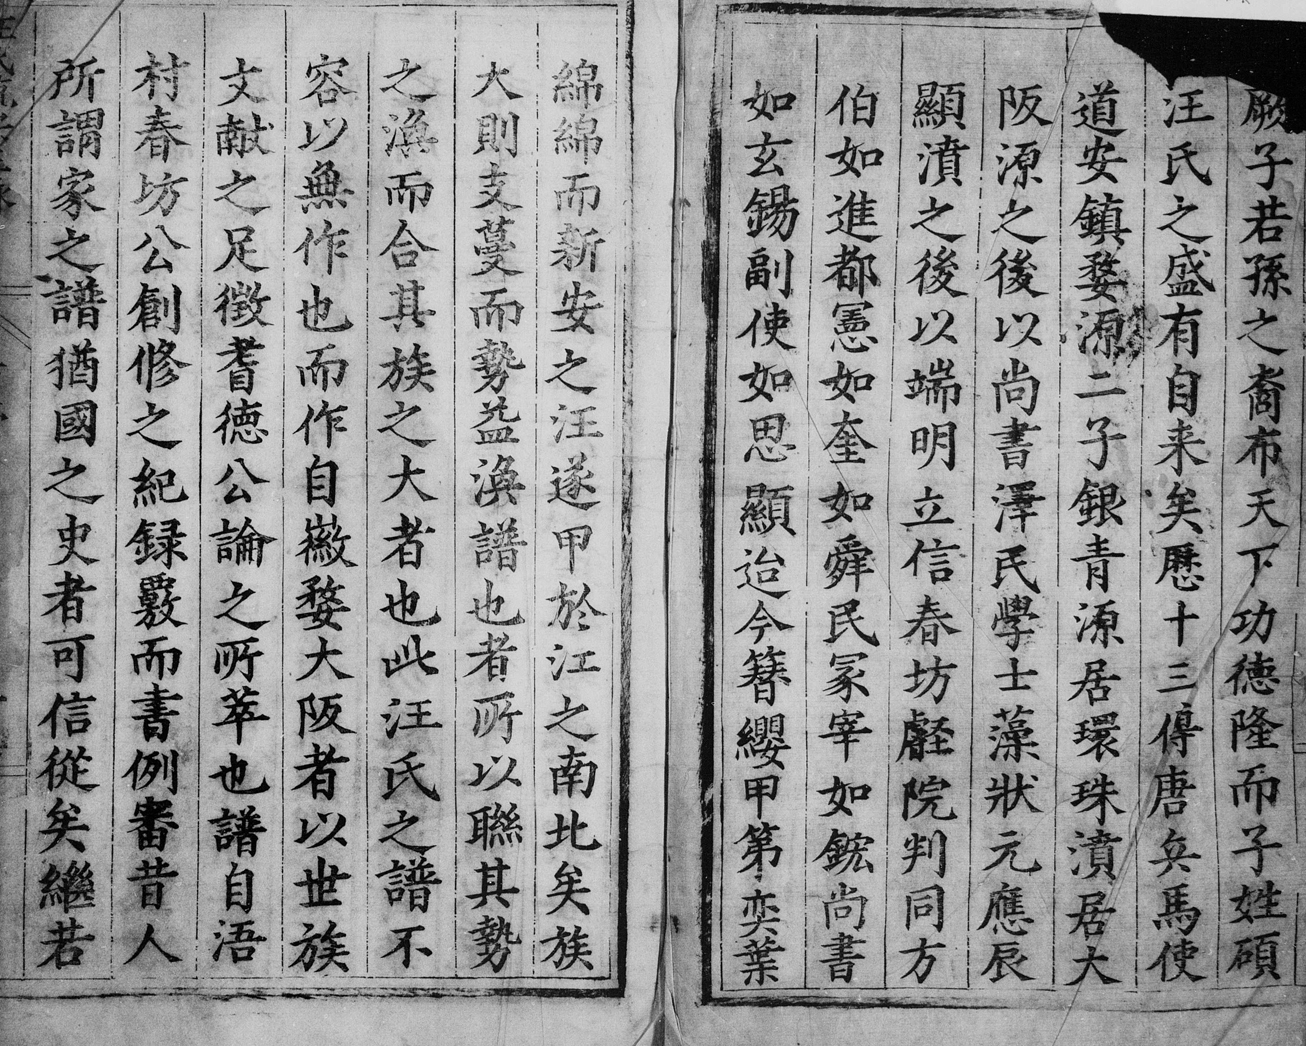 厥子若孫之裔布天下功德隆而子姓碩
汪氏之盛有自来矣歷十三傳唐兵馬使
道安鎮婺源二子銀青源居環珠濆居大
阪源之後以尚書澤民學士藻狀元應辰
顯濆之後以端明立信春坊龭院判同方
伯如進都憲如奎如舜民冢宰如鋐尚書
如玄錫副使如思顯迨今簪纓甲第奕葉
綿綿而新安之汪遂甲於江之南北矣族
大則支蔓而勢益渙譜也者所以聯其勢
之渙而合其族之大者也此汪氏之譜不
容以無作也而作自徽婺大阪者以世族
文献之足徵耆德公論之所萃也譜自浯
村春坊公創修之紀録覈而書例審昔人
所謂家之譜猶國之史者可信從矣繼若